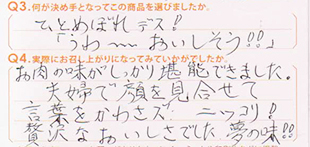 Q3.何が決め手となってこの商品を選びましたか。
ひとめぼれデス!
「うわ〜〜 おいしそう!!」
Q4.実際にお召し上がりになってみていかがでしたか。
お肉の味がしっかり堪能できました。
夫婦で顔を見合せて
言葉をかわさズ ニッコリ!
贅沢なおいしさでした 夢の味!!